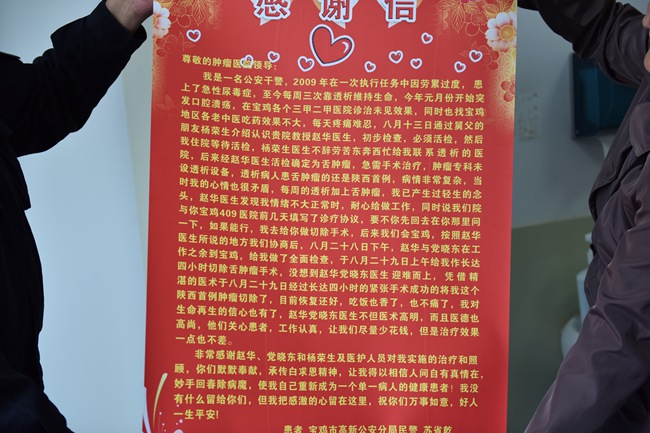 感谢信
尊敬的肿瘤医院领导：
我是一名公安干警，2009年在一次执行任务中因劳累过度，患
上了急性尿毒症，至今每周三次靠透析维持生命，今年元月份开始突
发口腔溃疡，在宝鸡各个三甲二甲医院诊治未见效果，同时也找宝鸡
地区各老中医吃药效果不大，每天疼痛难忍，八月十三日通过舅父的
朋友杨荣生介绍认识贵院教授赵华医生，初步检查，必须活检，然后
我住院等待活检，杨荣生医生不辞劳苦东奔西忙给我联系透析的医
院，后来经赵华医生活检确定为舌肿瘤，急需手术治疗，肿瘤专科未
设透析设备，透析病人患舌肿瘤的还是陕西首例，病情非常复杂，当
时我的心情也很矛盾，每周的透析加上舌肿瘤，我已产生过轻生的念
头，赵华医生发现我情绪不大正常时，耐心给做工作，同时说我们院
与你宝鸡409医院前几天填写了诊疗协议，要不你先回去在你那里问
一下，如果能行，我去给你做切除手术，后来我们会宝鸡，按照赵华
医生所说的地方我们协商后，八月二十八日下午，赵华与党晓东在工
作之余到宝鸡，给我做了全面检查，于八月二十九日上午给我作长达
四小时切除舌肿瘤手术，没想到赵华党晓东医生迎难而上，凭借精
湛的医术于八月二十九日经过长达四小时的紧张手术成功的将我这个
陕西首例肿瘤切除了，目前恢复还好，吃饭也香了，也不痛了，我对
生命再生的信心也有了，赵华党晓东医生不但医术高明，而且医德也
高尚，他们关心患者，工作认真，让我们尽量少花钱，但是治疗效果
一点也不差。
非常感谢赵华、党晓东和杨荣生及医护人员对我实施的治疗和照
顾，你们默默奉献，承传白求恩精神，让我得以相信人间自有真情在，
妙手回春除病魔，使我自己重新成为一个单一病人的健康患者！我没
有什么留给你们，但我把感激的心留在这里，祝你们万事如意，好人
一生平安！
患者 宝鸡市高新公安分局民警 苏省乾